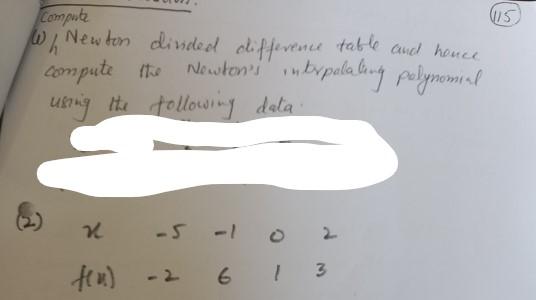 115
Compute
Newton divided difference table and hence
compute the Newton's intrpolating polynomial
using the following data.
(2) x -5 -1 0 2
f(x) -2 6 1 3